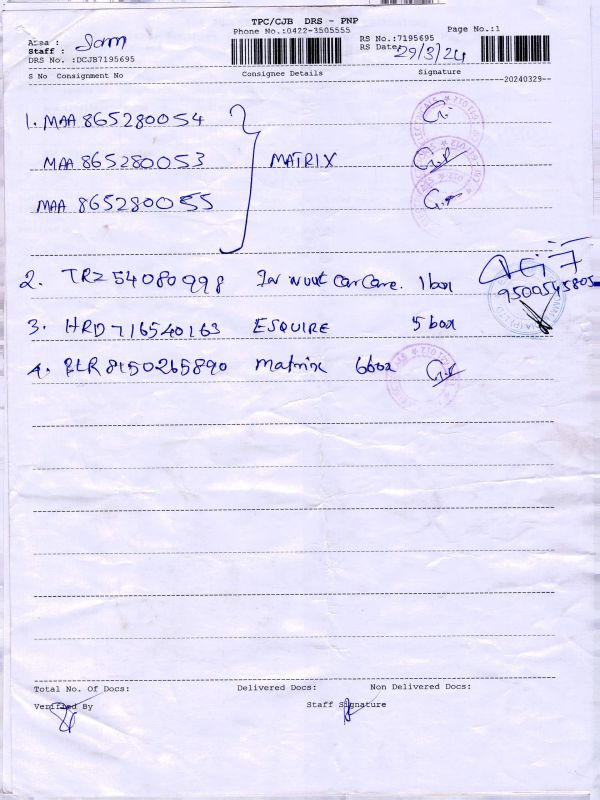 TPC/CJB DRS - PNP
Phone No.:0422-3505555
Page No.:1
Area :
Staff : Sam
RS No.:7195695
RS Date: 29/3/24
DRS No. :DCJB7195695
S No Consignment No Consignee Details Signature
20240329
1. MAA 865280054
MAA 865280053 MATRIX
MAA 865280055
2. TRZ 54080998 Car Care. 1 box
9500545805
3. HRD 716540163 ESQUIRE 5 box
4. BLR 8150265890 Matrix 6 box
Total No. Of Docs: Delivered Docs: Non Delivered Docs:
Verified By Staff Signature